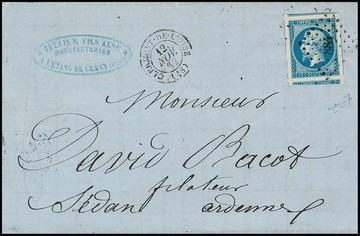 TELLIER FILS AINÉ
MANUFACTURIER
CLERMONT-DE-L'OISE
12
NOV.
EMPIRE FRANC
Monsieur
David Bacot
filateur
Sédan ardennes